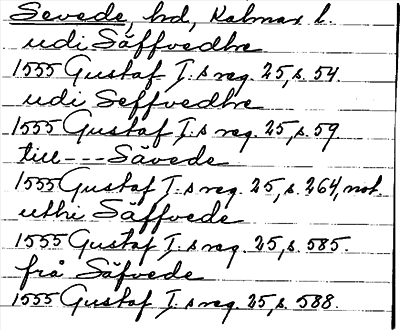 Sevede, hd, Kalmar l.
udi Säffvedhe
1555 Gustaf I:s reg. 25, s. 54.
udi Seffvedhe
1555 Gustaf I:s reg. 25, s. 59.
till --- Sävede
1555 Gustaf I:s reg. 25, s. 264, not.
uthi Säffvede
1555 Gustaf I:s reg. 25, s. 585.
frå Säfvede
1555 Gustaf I:s reg. 25, s. 588.